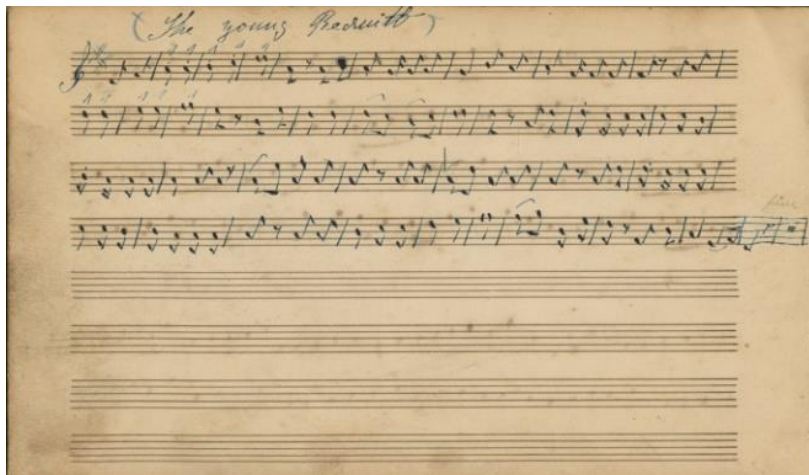 (The young Recruitt)
fine